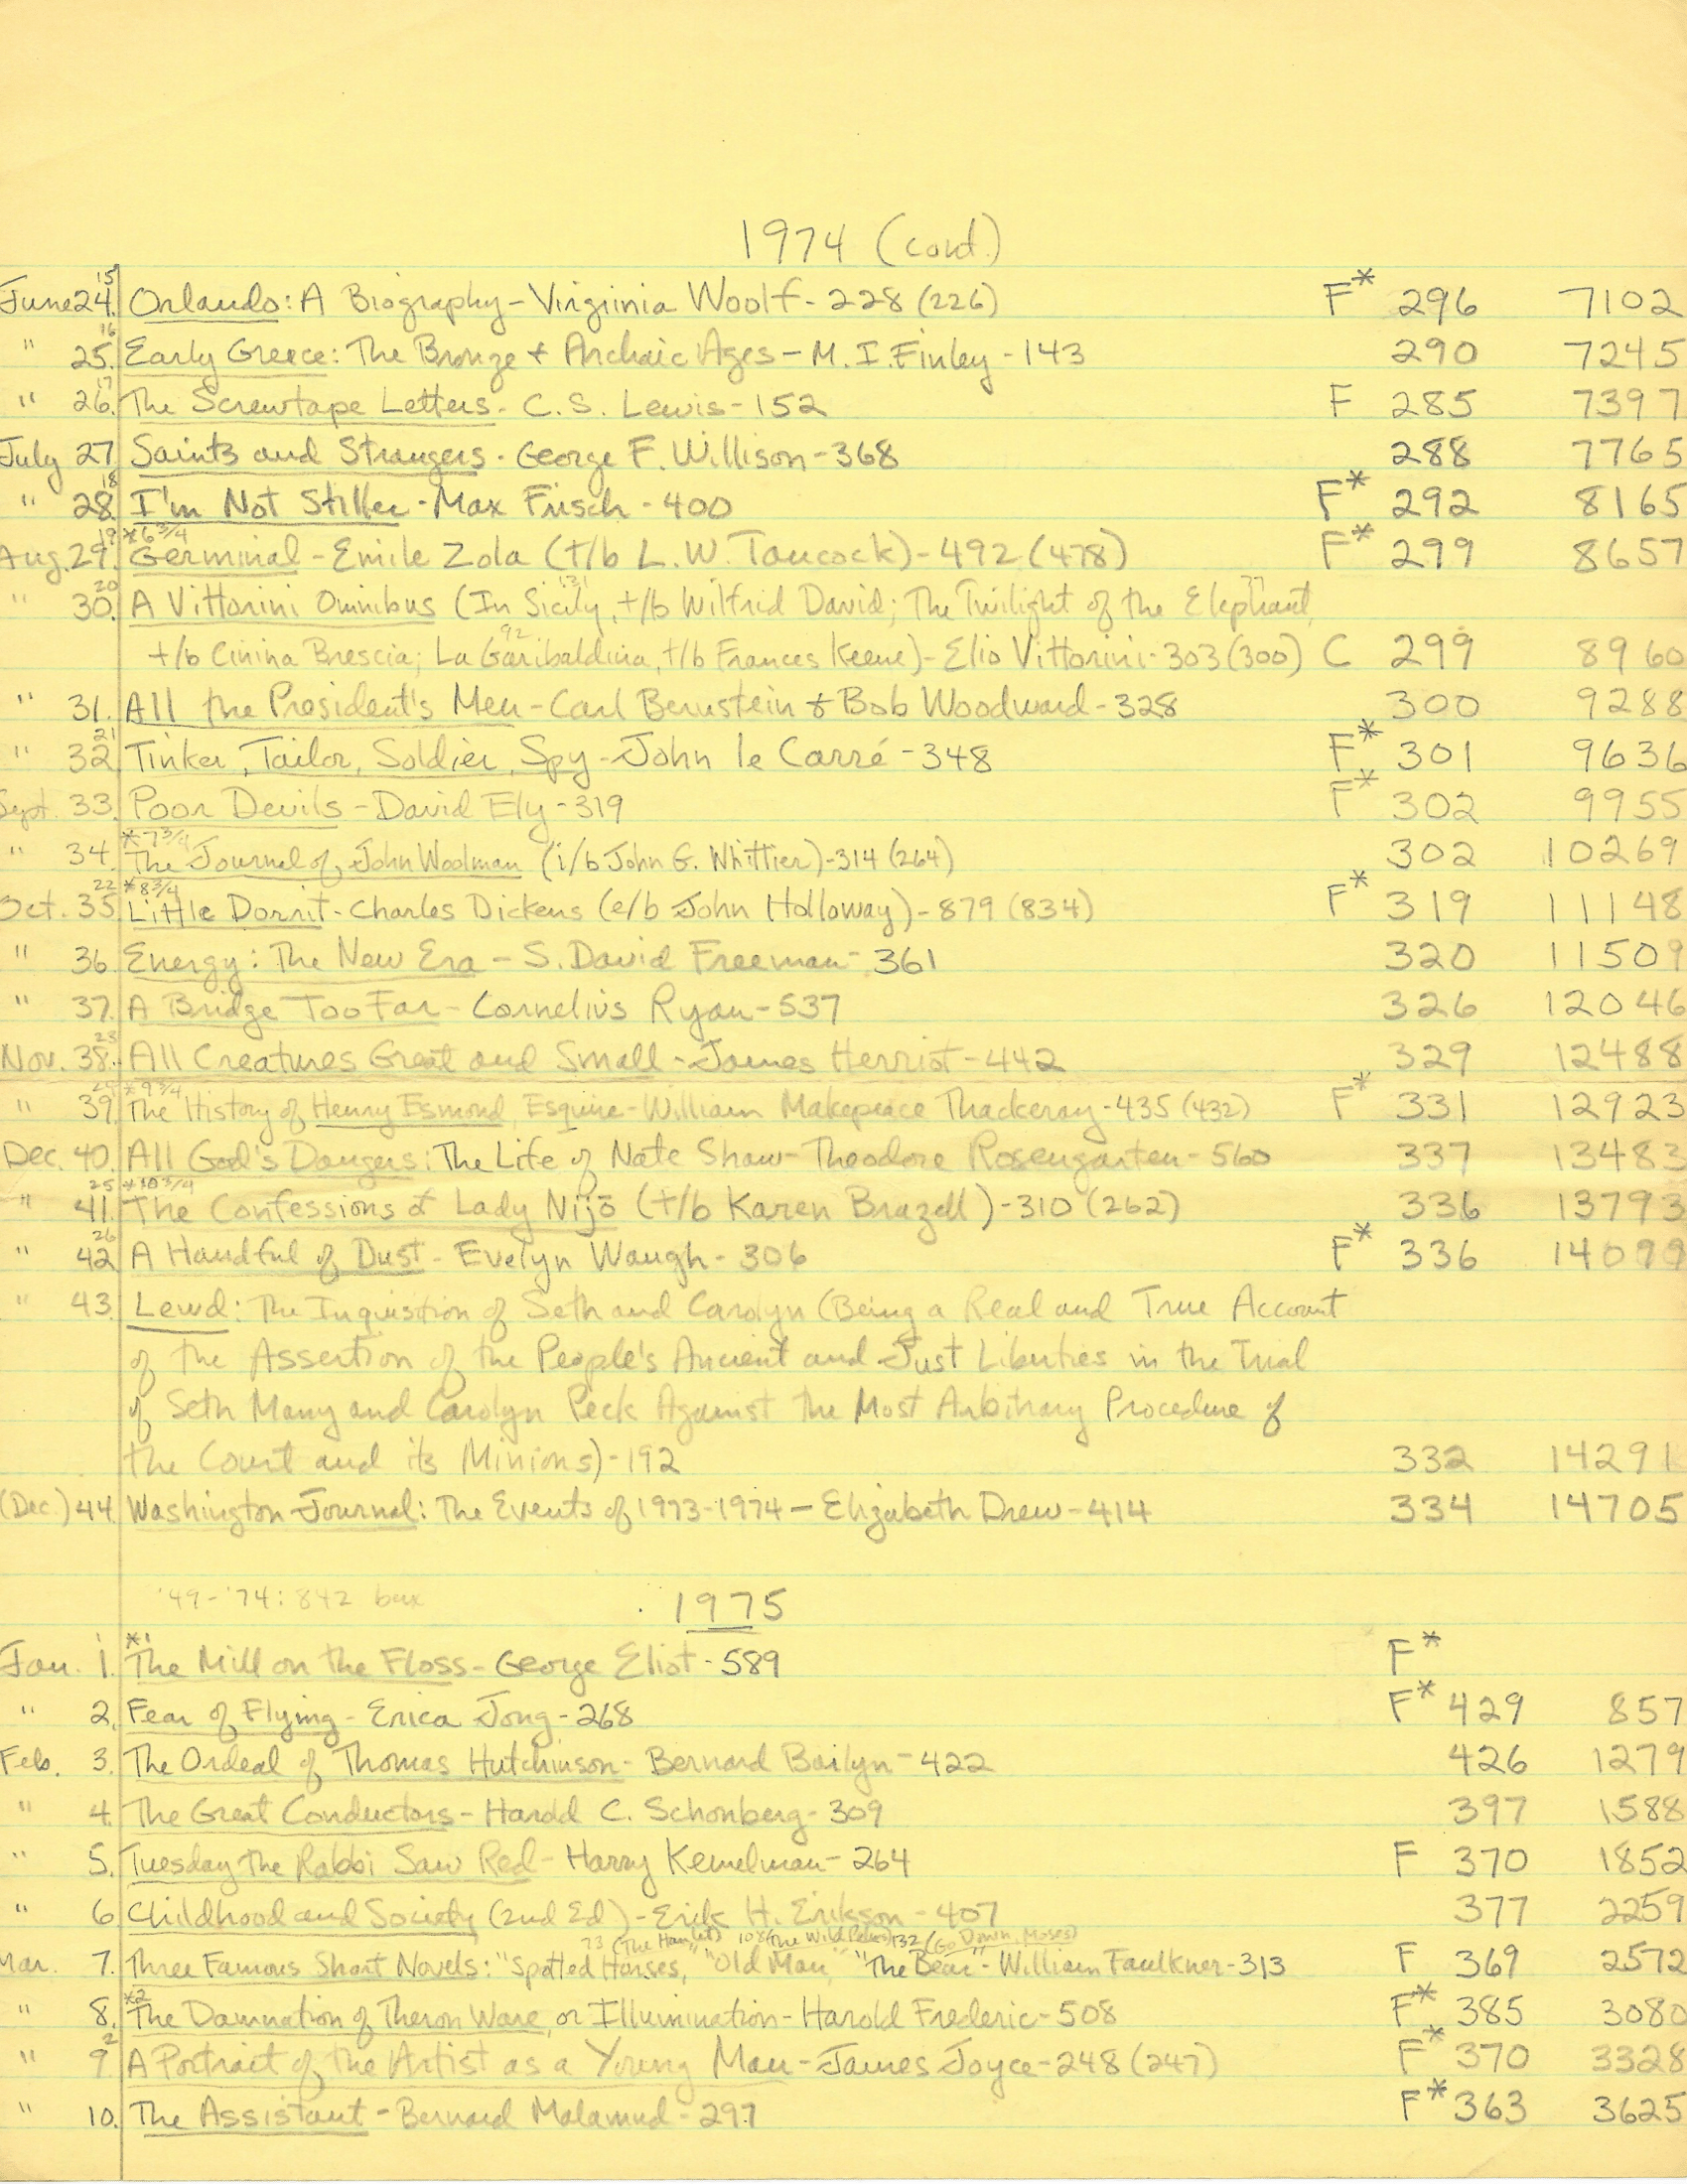 1974 (cont.)
June 24. 15 Orlando: A Biography - Virgiinia Woolf - 228 (226) F* 296 7102
" 25. 16 Early Greece: The Bronze + Archaic Ages - M. I. Finley - 143 290 7245
" 26. 17 The Screwtape Letters - C. S. Lewis - 152 F 285 7397
July 27. Saints and Strangers - George F. Willison - 368 288 7765
" 28. 18 I'm Not Stiller - Max Frisch - 400 F* 292 8165
Aug. 29. 19 *6 3/4 Germinal - Emile Zola (t/b L. W. Tancock) - 492 (478) F* 299 8657
" 30. 20 A Vittorini Omnibus (In Sicily, 131 t/b Wilfrid David; The Twilight of the Elephant, 77
t/b Cinina Brescia; La Garibaldina, 92 t/b Frances Keene) - Elio Vittorini - 303 (300) C 299 8960
" 31. All the President's Men - Carl Bernstein & Bob Woodward - 328 300 9288
" 32. 21 Tinker, Tailor, Soldier, Spy - John le Carré - 348 F* 301 9636
Sept. 33. Poor Devils - David Ely - 319 F* 302 9955
" 34. *7 3/4 The Journal of John Woolman (i/b John G. Whittier) - 314 (264) 302 10269
Oct. 35. 22 *8 3/4 Little Dorrit - Charles Dickens (e/b John Holloway) - 879 (834) F* 319 11148
" 36. Energy: The New Era - S. David Freeman - 361 320 11509
" 37. A Bridge Too Far - Cornelius Ryan - 537 326 12046
Nov. 38. 23 All Creatures Great and Small - James Herriot - 442 329 12488
" 39. 24 *9 3/4 The History of Henry Esmond, Esquire - William Makepeace Thackeray - 435 (432) F* 331 12923
Dec. 40. All God's Dangers: The Life of Nate Shaw - Theodore Rosengarten - 560 337 13483
" 41. 25 *10 3/4 The Confessions of Lady Nijō (t/b Karen Brazell) - 310 (262) 336 13793
" 42. 26 A Handful of Dust - Evelyn Waugh - 306 F* 336 14099
" 43. Lewd: The Inquisition of Seth and Carolyn (Being a Real and True Account
of the Assertion of the People's Ancient and Just Liberties in the Trial
of Seth Many and Carolyn Peck Against the Most Arbitrary Procedure of
the Court and its Minions) - 192 332 14291
(Dec.) 44. Washington Journal: The Events of 1973-1974 - Elizabeth Drew - 414 334 14705
'49-'74: 842 1975
Jan. 1. 1 *1 The Mill on the Floss - George Eliot - 589 F*
" 2. Fear of Flying - Erica Jong - 268 F* 429 857
Feb. 3. The Ordeal of Thomas Hutchinson - Bernard Bailyn - 422 426 1279
" 4. The Great Conductors - Harold C. Schonberg - 309 397 1588
" 5. Tuesday the Rabbi Saw Red - Harry Kemelman - 264 F 370 1852
" 6. Childhood and Society (2nd Ed) - Erik H. Erikson - 407 377 2259
73 (The Hamlet) 108 (The Wild Palms) 132 (Go Down, Moses)
Mar. 7. Three Famous Short Novels: "Spotted Horses," "Old Man," "The Bear" - William Faulkner - 313 F 369 2572
" 8. *2 The Damnation of Theron Ware, or Illumination - Harold Frederic - 508 F* 385 3080
" 9. 2 A Portrait of the Artist as a Young Man - James Joyce - 248 (247) F* 370 3328
" 10. The Assistant - Bernard Malamud - 297 F* 363 3625